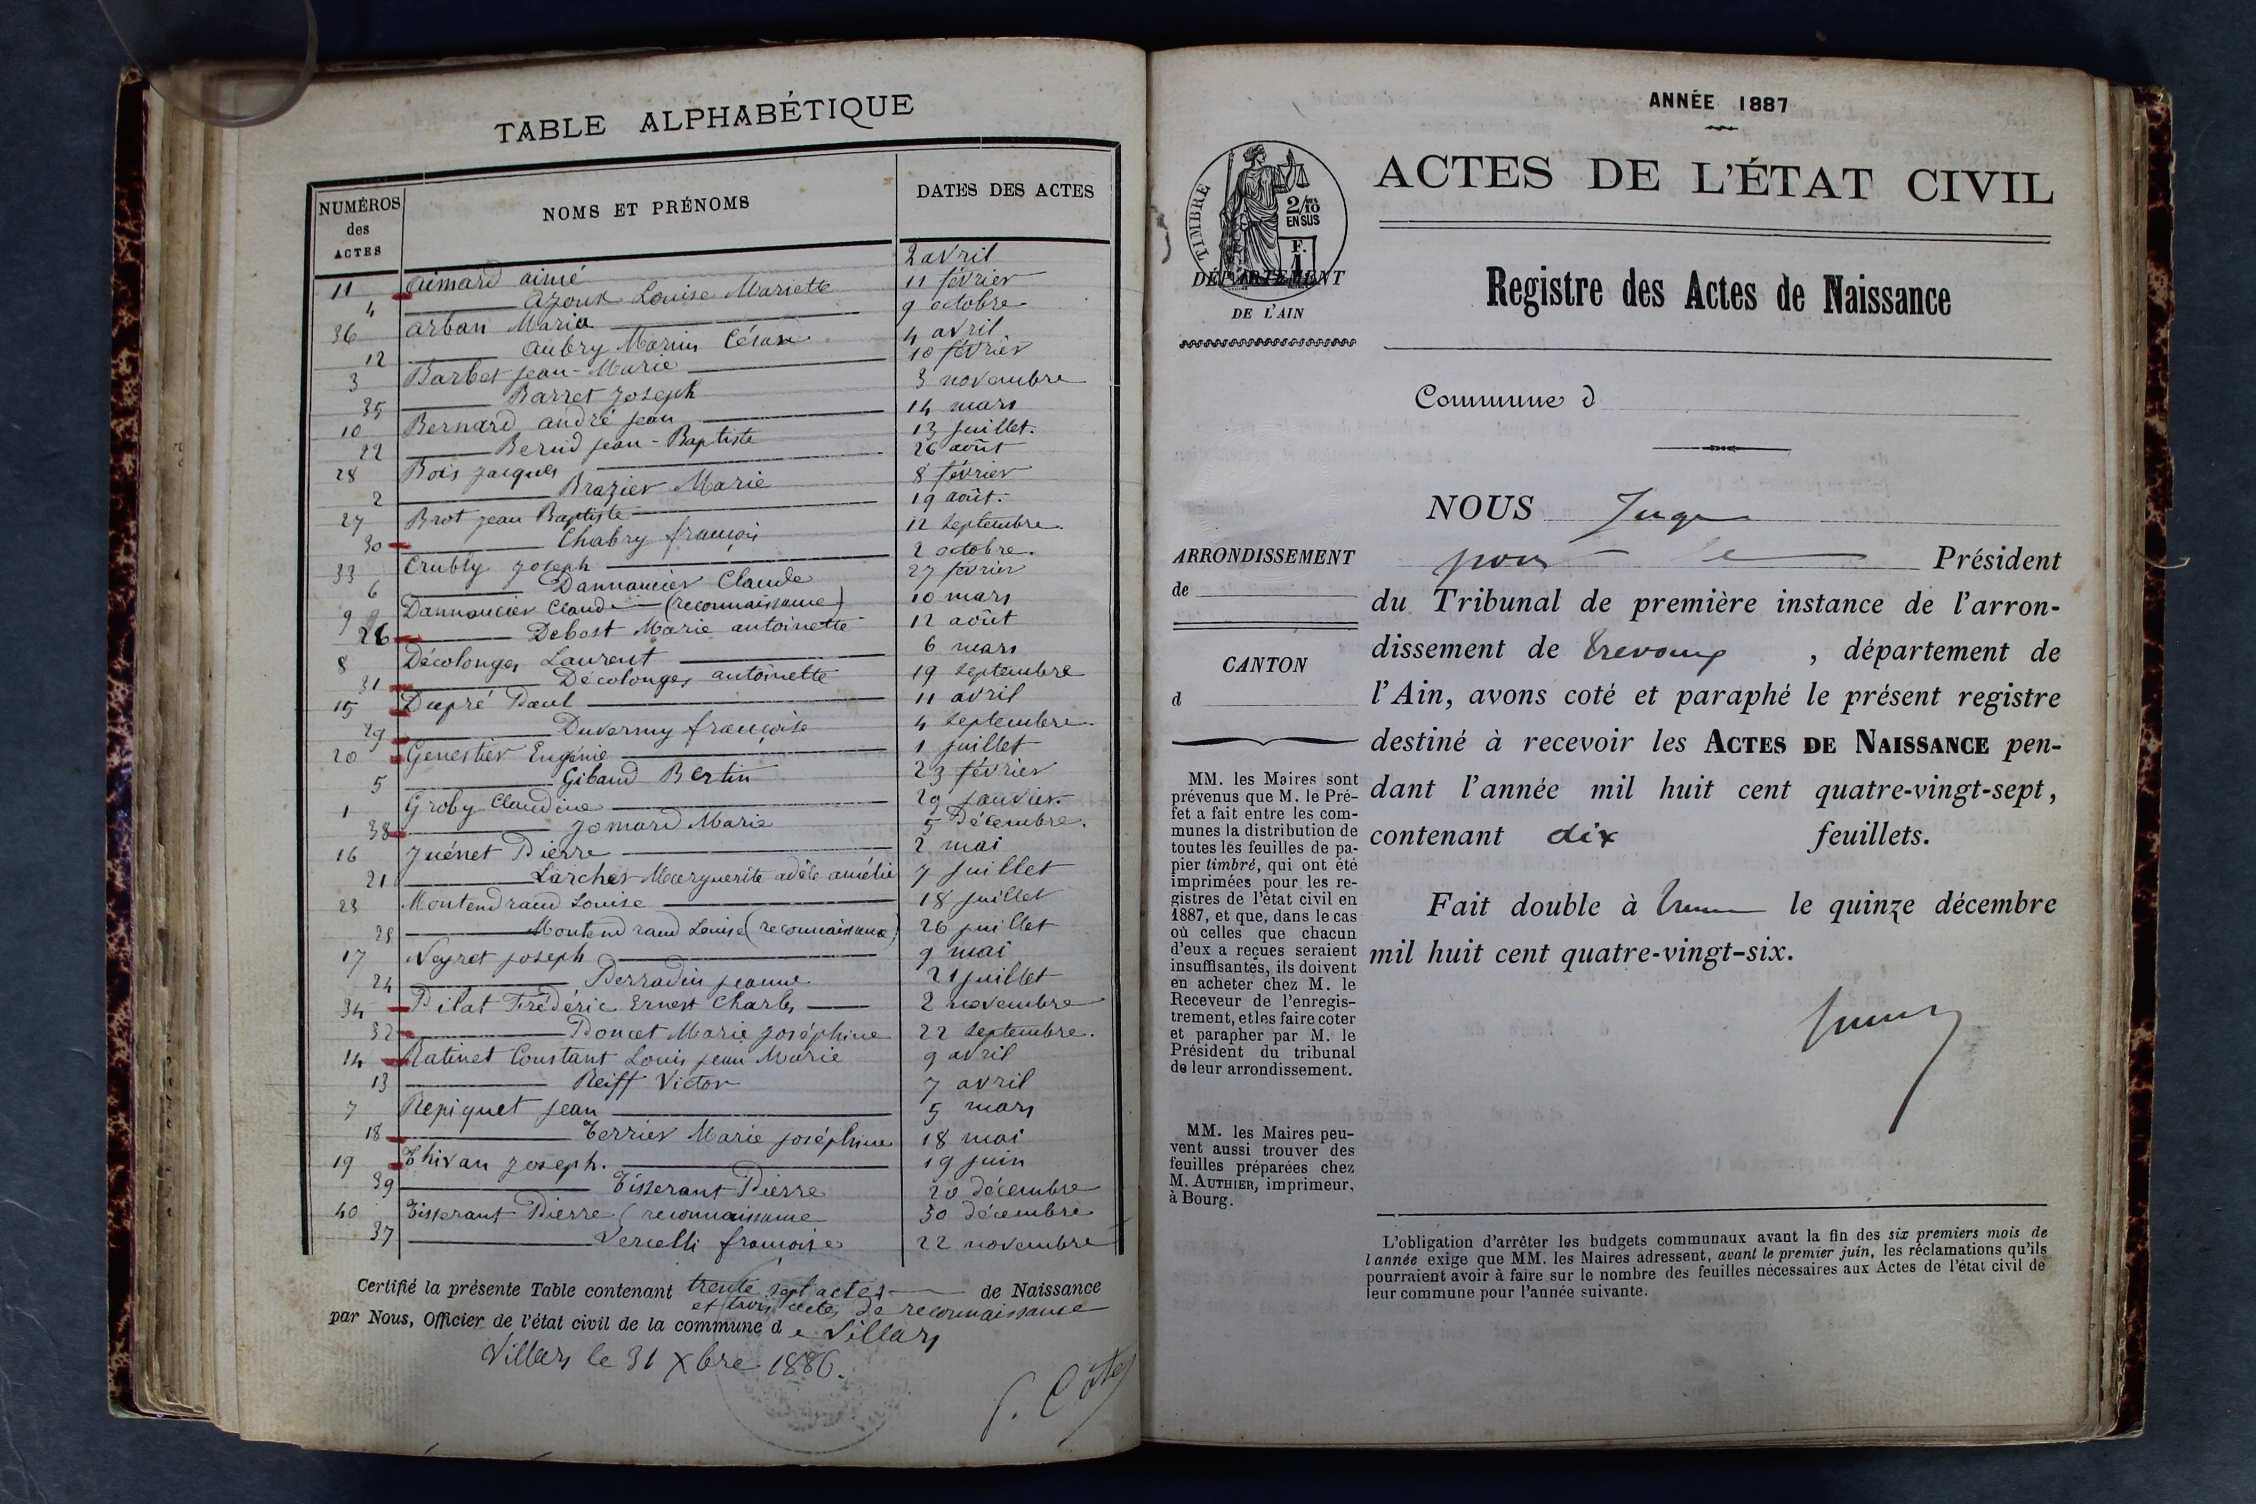 TABLE ALPHABÉTIQUE
NUMÉROS des ACTES NOMS ET PRÉNOMS DATES DES ACTES
11 Aimard aimé 2 avril
4 Azoux Louise Mariette 11 février
36 Arban Maria 9 octobre
12 Aubry Marius César 4 avril
3 Barbet Jean-Marie 10 février
35 Barret Joseph 3 novembre
10 Bernard andré Jean 14 mars
22 Bernid Jean-Baptiste 13 juillet.
28 Bois Jacques 26 août
2 Brazier Marie 8 février
27 Brot Jean Baptiste 19 août.
30 Chabry françois 12 septembre.
33 Crubly Joseph 2 octobre.
6 Dannancier Claude 27 février
9 Dannancier Claude (reconnaissance) 10 mars
26 Debost Marie antoinette 12 août
8 Décolonges Laurent 6 mars
31 Décolonges antoinette 19 septembre
15 Dupré Paul 11 avril
29 Duverny françoise 4 septembre
20 Genestier Eugénie 1 juillet
5 Gibaud Bertin 23 février
1 Groby Claudine 29 janvier
38 Jomard Marie 5 Décembre.
16 Juénet Pierre 2 mai
21 Larcher Marguerite adèle amélie 7 juillet
23 Montendraud Louise 18 juillet
25 Montendraud Louise (reconnaissance) 26 juillet
17 Neyret Joseph 9 mai
24 Perradin Jeanne 21 juillet
34 Pilat Frédéric Ernest Charles 2 novembre
32 Poncet Marie Joséphine 22 septembre.
14 Ratinet Constant Louis Jean Marie 9 avril
13 Reiff Victor 7 avril
7 Repiquet Jean 5 mars
18 Terrier Marie Joséphine 18 mai
19 Thivan Joseph. 19 juin
39 Tisserant Pierre 20 décembre
40 Tisserant Pierre (reconnaissance 30 décembre
37 Vercelli françoise 22 novembre
Certifié la présente Table contenant trente sept actes de Naissance
et trois actes de reconnaissance
par Nous, Officier de l'état civil de la commune de Villars
Villars le 31 Xbre 1886.
ANNÉE 1887
ACTES DE L'ÉTAT CIVIL
TIMBRE
2/10
EN SUS
F.
1
DÉPARTEMENT
DE L'AIN
Registre des Actes de Naissance
Commune d
NOUS Juge
pour le Président
du Tribunal de première instance de l'arron-
dissement de Trevoux, département de
l'Ain, avons coté et paraphé le présent registre
destiné à recevoir les ACTES DE NAISSANCE pen-
dant l'année mil huit cent quatre-vingt-sept,
contenant dix feuillets.
Fait double à le quinze décembre
mil huit cent quatre-vingt-six.
ARRONDISSEMENT
de
CANTON
d
MM. les Maires sont
prévenus que M. le Pré-
fet a fait entre les com-
munes la distribution de
toutes les feuilles de pa-
pier timbré, qui ont été
imprimées pour les re-
gistres de l'état civil en
1887, et que, dans le cas
où celles que chacun
d'eux a reçues seraient
insuffisantes, ils doivent
en acheter chez M. le
Receveur de l'enregis-
trement, et les faire coter
et parapher par M. le
Président du tribunal
de leur arrondissement.
MM. les Maires peu-
vent aussi trouver des
feuilles préparées chez
M. AUTHIER, imprimeur,
à Bourg.
L'obligation d'arrêter les budgets communaux avant la fin des six premiers mois de
l'année exige que MM. les Maires adressent, avant le premier juin, les réclamations qu'ils
pourraient avoir à faire sur le nombre des feuilles nécessaires aux Actes de l'état civil de
leur commune pour l'année suivante.